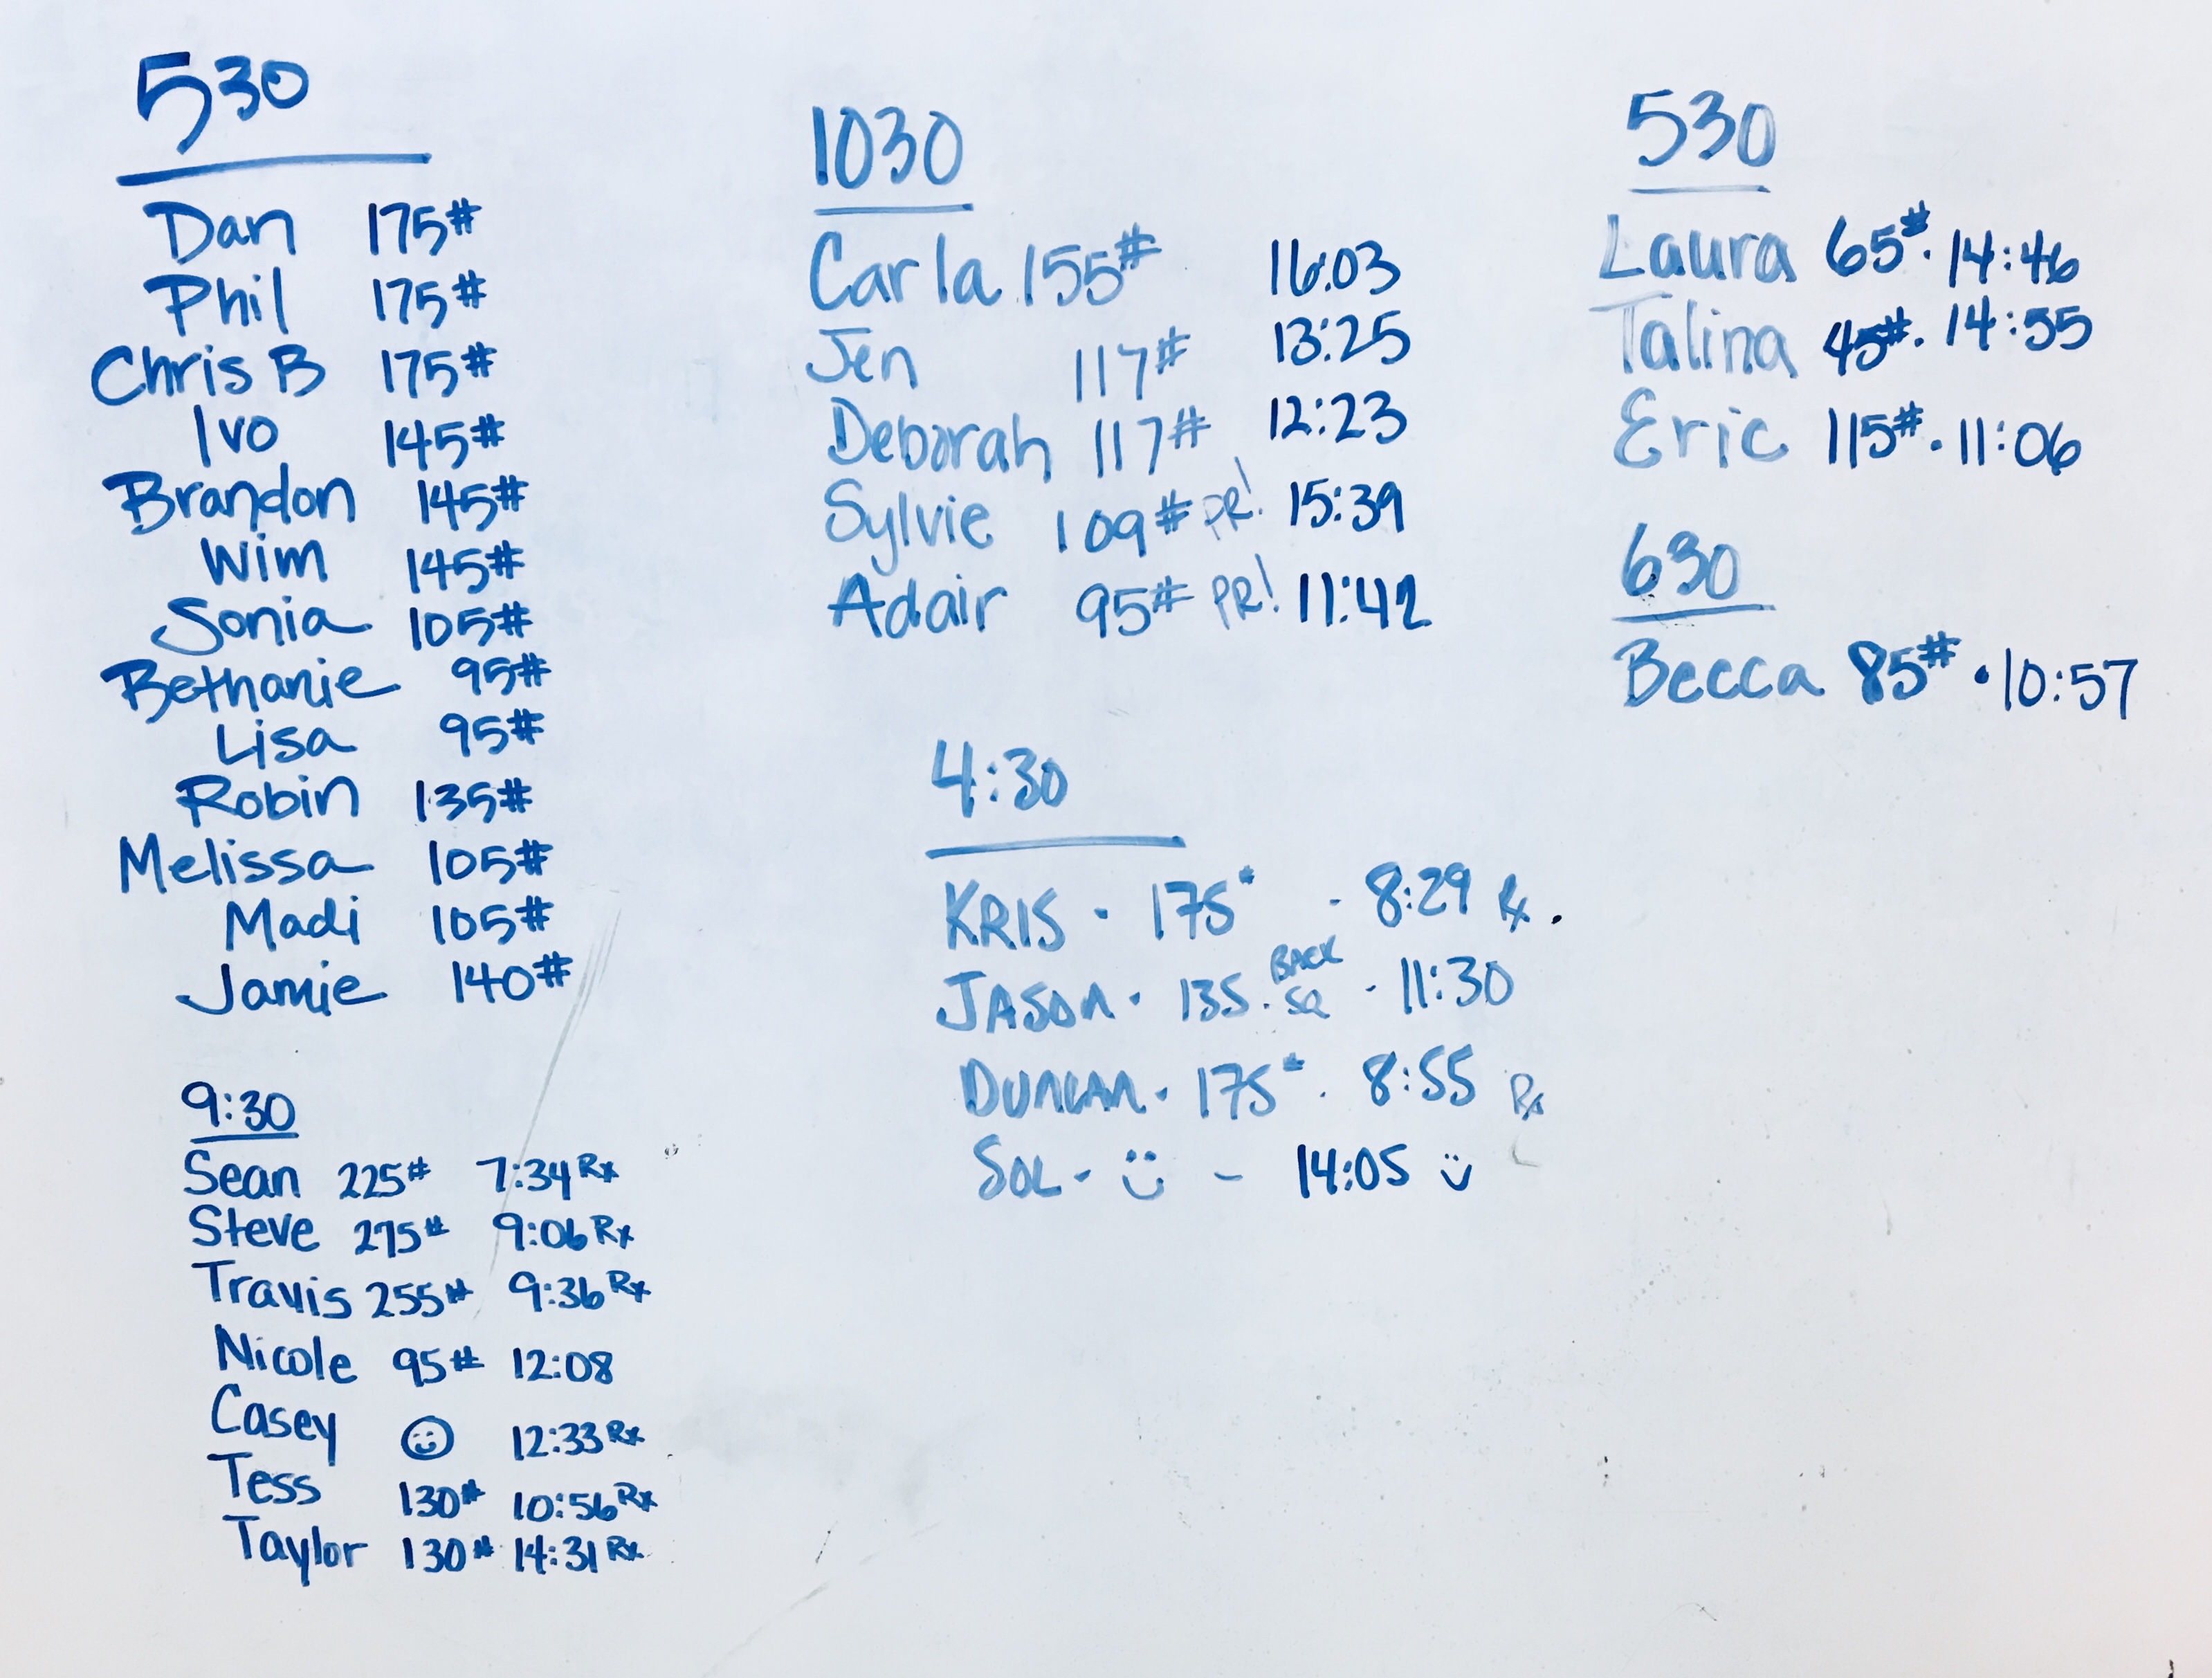 530
Dan 175#
Phil 175#
Chris B 175#
Ivo 145#
Brandon 145#
Wim 145#
Sonia 105#
Bethanie 95#
Lisa 95#
Robin 135#
Melissa 105#
Madi 105#
Jamie 140#
9:30
Sean 225# 7:34 Rx
Steve 275# 9:06 Rx
Travis 255# 9:36 Rx
Nicole 95# 12:08
Casey ☺ 12:33 Rx
Tess 130# 10:56 Rx
Taylor 130# 14:31 Rx
1030
Carla 155# 16:03
Jen 117# 13:25
Deborah 117# 12:23
Sylvie 109# PR! 15:39
Adair 95# PR! 11:42
4:30
KRIS · 175# - 8:29 Rx.
JASON · 135 · BACK SQ - 11:30
DUNCAN · 175# · 8:55 Rx
SOL - ☺ - 14:05 ☺
530
Laura 65# · 14:46
Talina 45# · 14:55
Eric 115# · 11:06
630
Becca 85# · 10:57